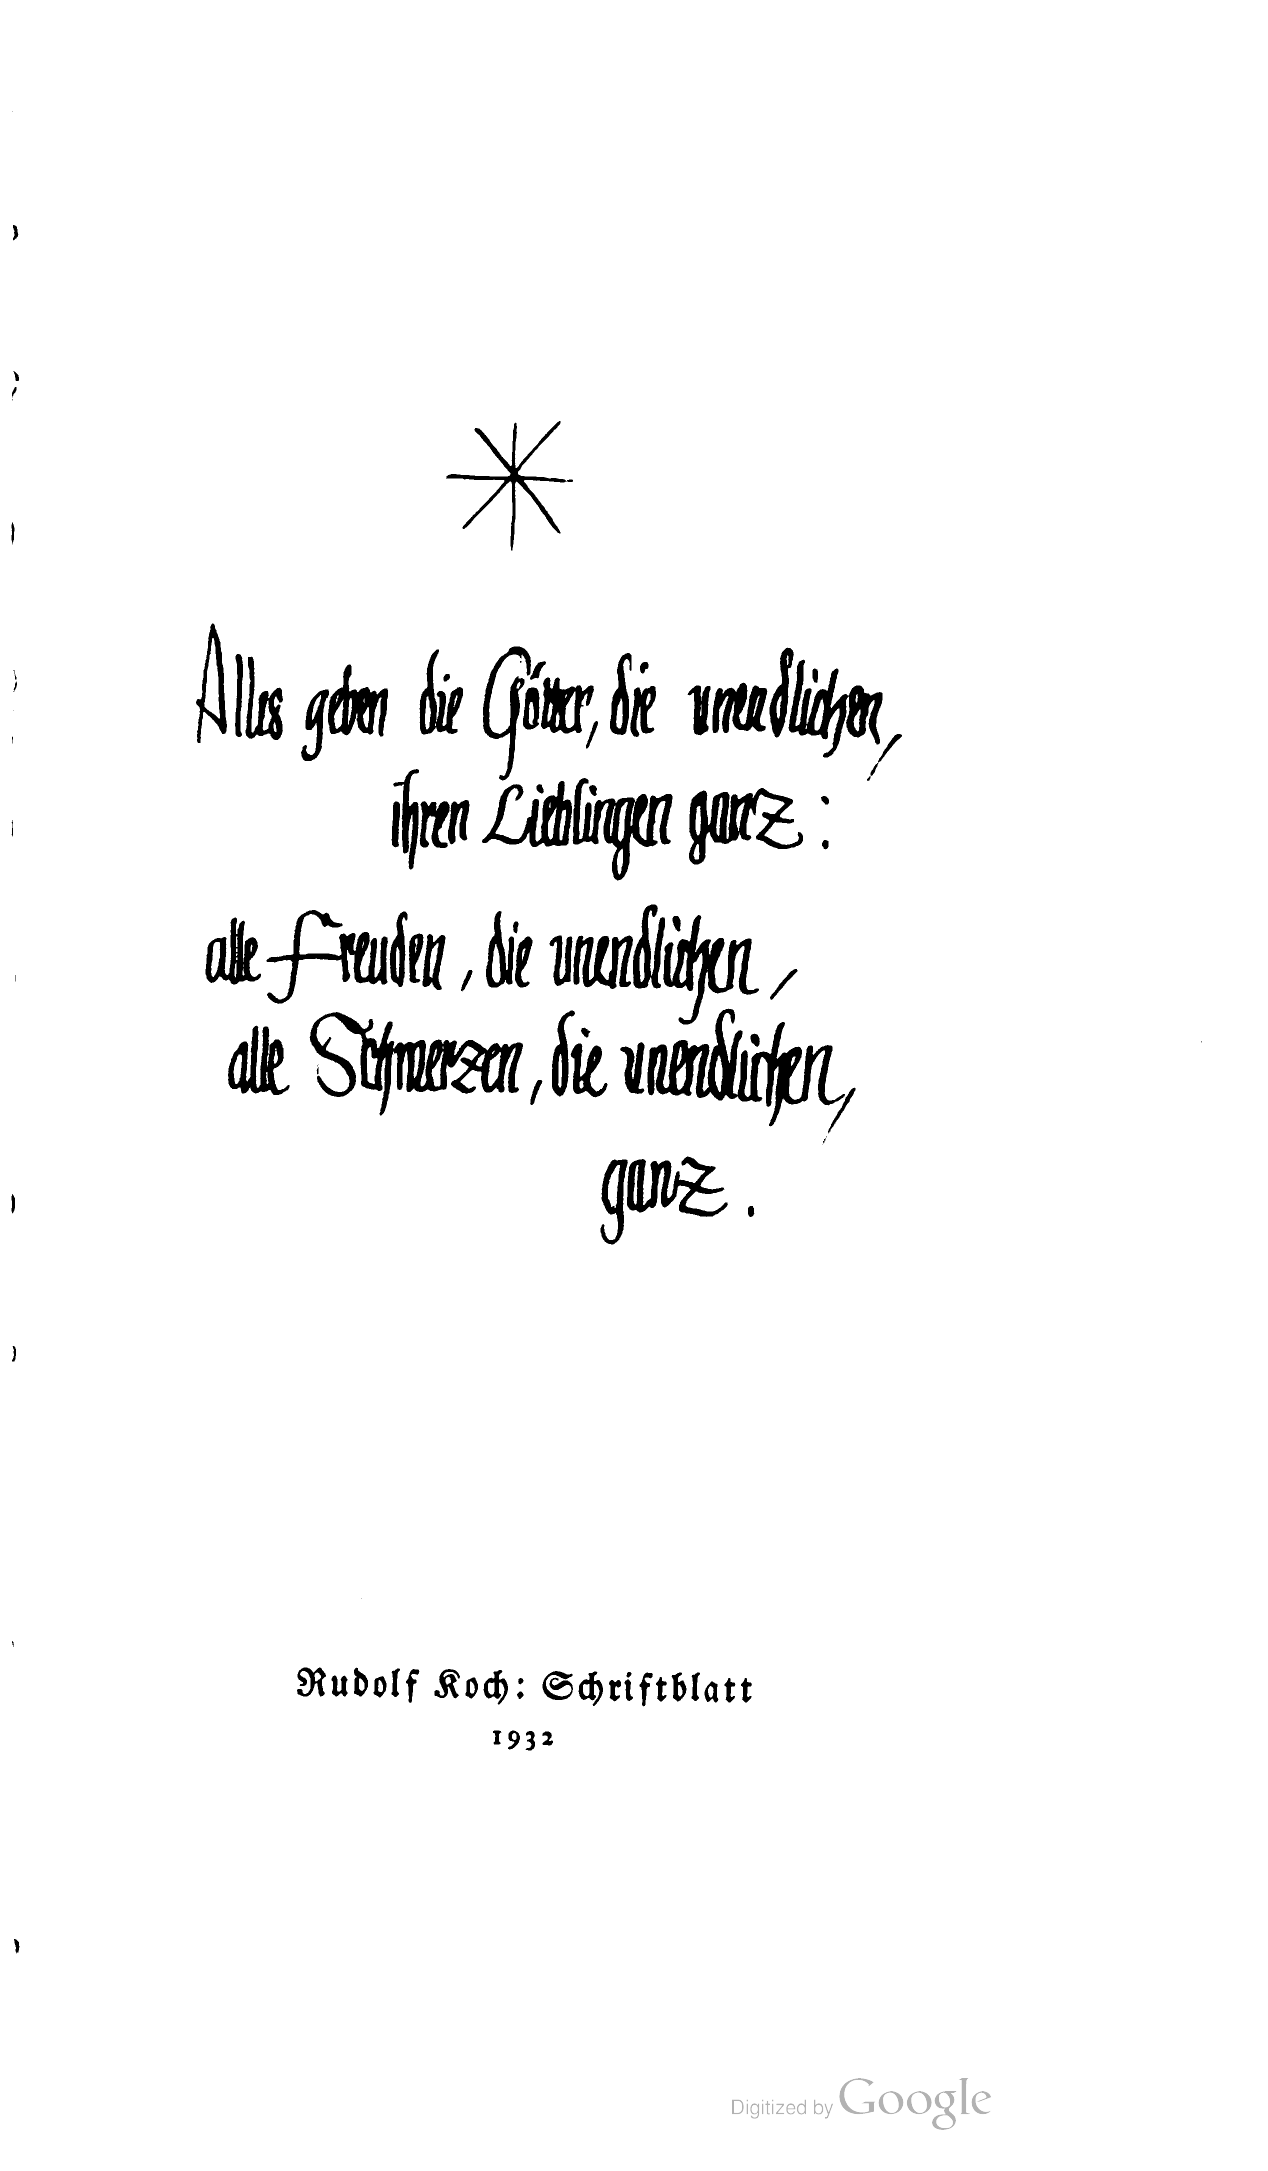 Alles geben die Götter, die unendlichen,
ihren Lieblingen ganz:
alle Freuden, die unendlichen,
alle Schmerzen, die unendlichen,
ganz.
Rudolf Koch: Schriftblatt
1932
Digitized by Google